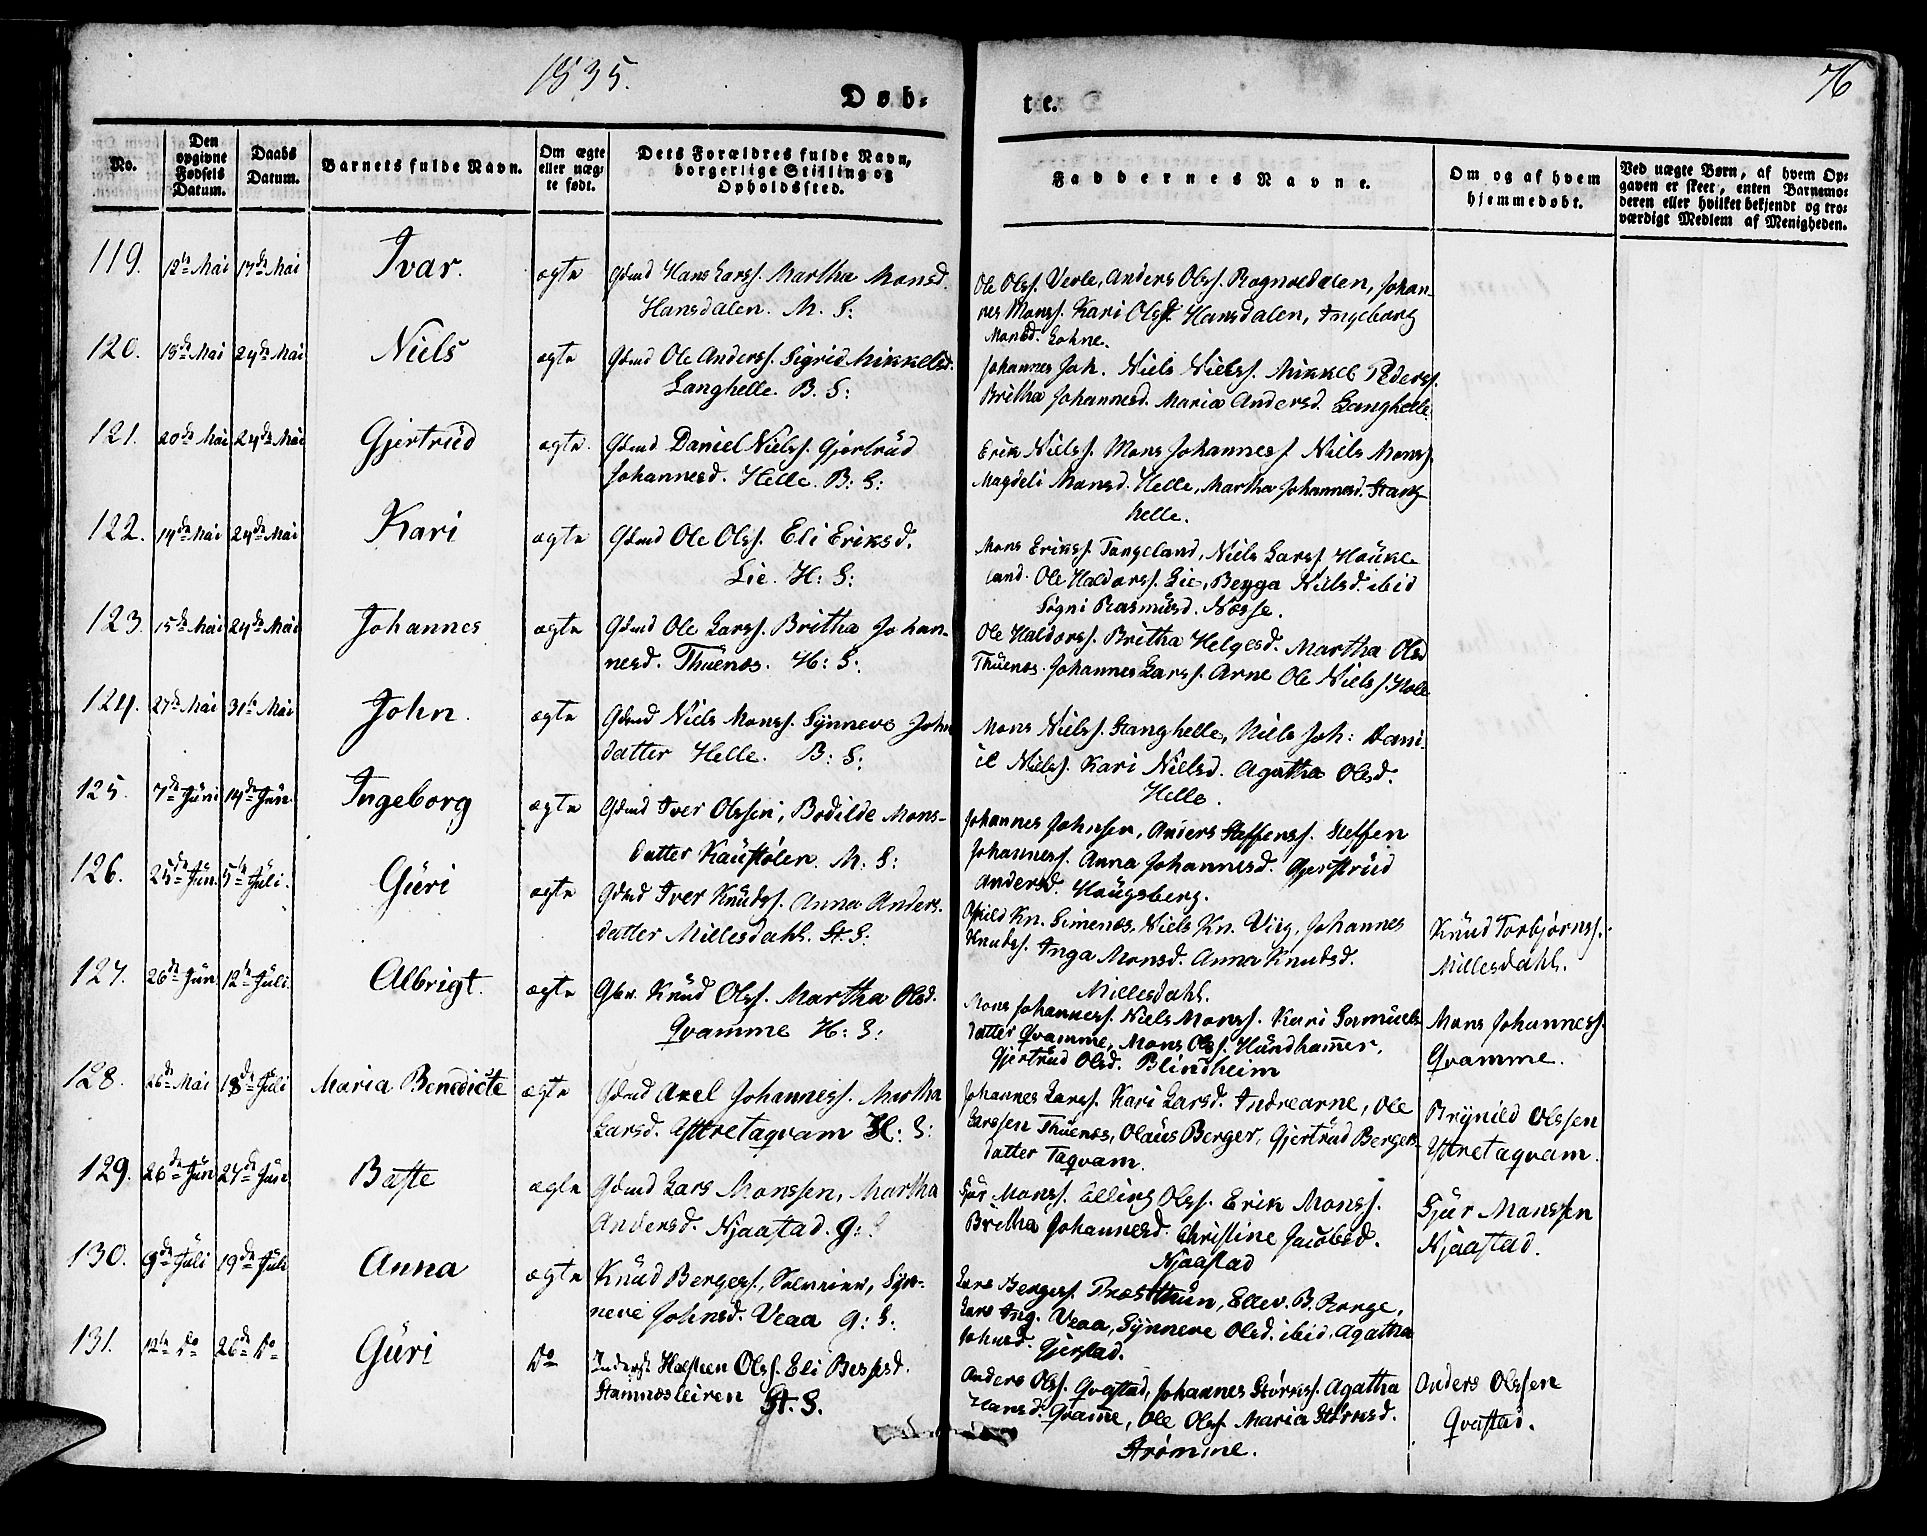 1835.
76
Døb-
te.
No.
Den opgivne Fødsels Datum.
Daabs Datum.
Barnets fulde Navn.
Om ægte eller uægte født.
Dets Forældres fulde Navn, borgerlige Stilling og Opholdssted.
Faddernes Navne.
Om og af hvem hjemmedøbt.
Ved uægte Børn, af hvem Opgaven er skeet, enten Barnemoderen eller hvilket bekjendt og troværdigt Medlem af Menigheden.
119. 12te Mai 17de Mai Ivar. ægte Gdmd Hans Larss. Martha Monsd.
Hansdalen. M. S:
Ole Olss. Verle, Anders Olss. Rognvedalen, Johan-
nes Monss. Kari Olsd. Hansdalen, Ingeborg
Monsd. Lohne.
120. 18de Mai 24de Mai Niels ægte Gdmd Ole Anderss. Sigrid Mikkelsd.
Langhelle. B. S:
Johannes Joh. Niels Nielss. Mikkel Pederss.
Britha Johannesd. Maria Andersd. Langhelle
121. 20de Mai 24de Mai Gjertrüd ægte. Gdmd Daniel Nielss. Gjertrüd
Johannesd. Helle. B: S:
Erik Nielss. Mons Johanness. Niels Monss.
Magdeli Monsd. Helle, Martha Johannesd. Stang-
helle.
122. 14de Mai 24de Mai Kari ægte Gdmd Ole Olss. Eli Eriksd.
Lie. H: S:
Mons Erikss. Tangeland, Niels Larss. Houke
land. Ole Haldorss. Lie, Beyga Nielsd. ibid
Søgni Rasmüsd. Næsse.
123. 15de Mai 24de Mai Johannes ægte Gdmd Ole Larss. Britha Johan-
nesd. Thüenæs. H: S:
Ole Haldorss. Britha Helgesd. Martha Olsd
Thüenæs. Johannes Larss. Arne Ole Nielss. Hole
124. 27de Mai 31te Mai John. ægte Gdmd Niels Monss. Synneve John
datter Helle. B: S:
Mons Nielss. Stanghelle, Niels Joh: Dani-
il Nielss. Kari Nielsd. Agatha Olsd.
Helle.
125. 7de Jüni 14de Jün. Ingeborg ægte Gdmd Iver Olssen, Bodilde Mons-
datter Kaustølen M. S:
Johannes Johnsen, Anders Steffenss. Steffen
Johanness. Anna Johannesd. Gjertrüd
Andersd. Hoügsberg.
126. 25de Jün. 5te Jüli. Güri ægte Gdmd Iver Knüdss. Anna Anders.
datter Millesdahl. St. S:
Kn. Simenæs, Niels Kn. Viig, Johannes
Knudss. Inga Monsd. Anna Knudsd.
Millesdahl.
Knüd Torbjørnss.
Millesdahl.
127. 26de Jün. 12te Jüli. Albrigt. ægte Knüd Olss. Martha Olsd.
Qvamme H: S:
Mons Johanness. Niels Monss. Kari Samuels
datter Qvamme, Mons Olss. Hündhamer,
Gjertrüd Olsd. Blindheim
Mons Johanness.
Qvamme.
128. 26de Mai 18de Jüli Maria Benedicte ægte Gdmd Axel Johanness. Martha
Larsd. Yttretaqvam H: S:
Johannes Larss. Kari Larsd. Andrearne, Ole
Larssen Thüenæs, Olaus Berger, Gjertrüd Bergers-
datter Taqvam.
Brynild Olssen
Yttretaqvam.
129. 26de Jün 27de Jüni Baste ægte Gdmd Lars Monssen, Martha
Andersd. Njaastad. G: S
Sjür Monss. Elling Olss. Erik Monss.
Britha Johannesd. Christine Jacobsd.
Njaastad
Sjür Monssen
Njaastad.
130. 9de Jüli 19de Jüli Anna ægte Knüd Bergess. Syn-
neve Johnsd. Veaa G: S:
Lars Bergess. Præsthün, Ellev. B. Rørge,
Lars Ing. Veaa, Synneve Olsd. ibid, Agatha
Johnsd. Gjerstad.
131. 12te Do 26de Do Güri Do Inderst Halsteen Olss. Eli Bessesd.
Stamnæsleiren St. S.
Anders Olss. Qvastad, Johannes Størkss. Agatha
Hansd. Qvamme, Ole Olss. Maria Størksd.
Strømme.
Anders Olssen
Qvastad.